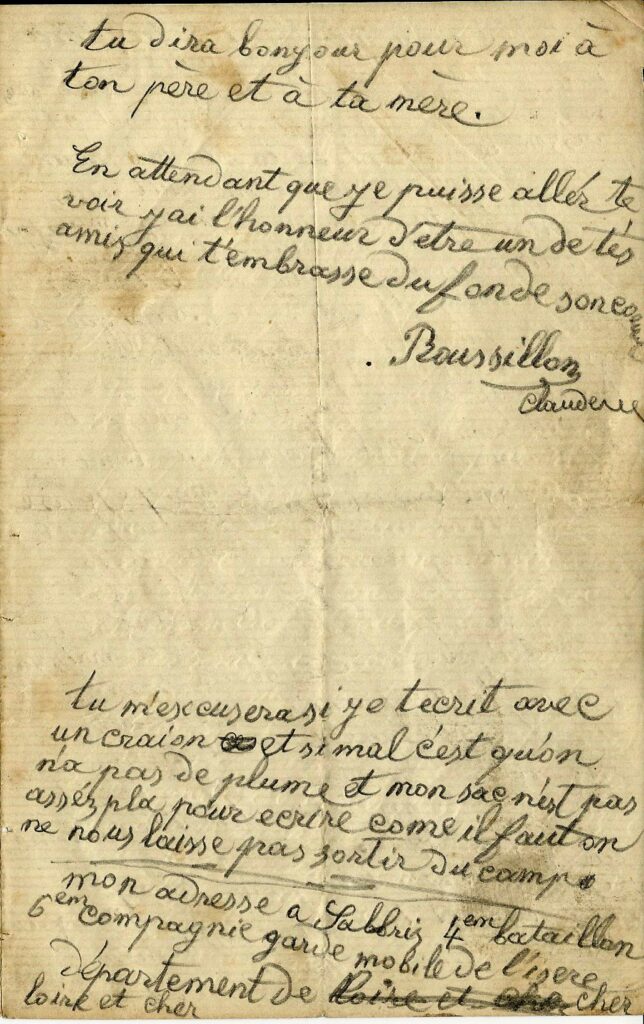 tu dira bonjour pour moi à
ton père et à ta mère.
En attendant que je puisse allér te
voir j'ai l'honneur d'etre un de tés
amis qui t'embrasse du fonde son coeur
Roussillon
Claude
tu m'excusera si je t'ecrit avec
un craion et si mal c'est qu'on
n'a pas de plume et mon sac n'est pas
assés pla pour ecrire come il faut on
ne nous laisse pas sortir du camp
mon adresse a Salbris 4em bataillon
6em compagnie garde mobile de l'isere
département de loire et cher cher
loire et cher